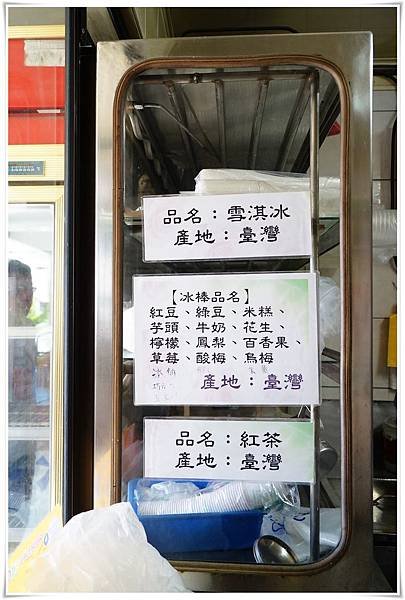 品名：雪淇冰
產地：臺灣
【冰棒品名】
紅豆、綠豆、米糕、
芋頭、牛奶、花生、
檸檬、鳳梨、百香果、
草莓、酸梅、烏梅
產地：臺灣
品名：紅茶
產地：臺灣